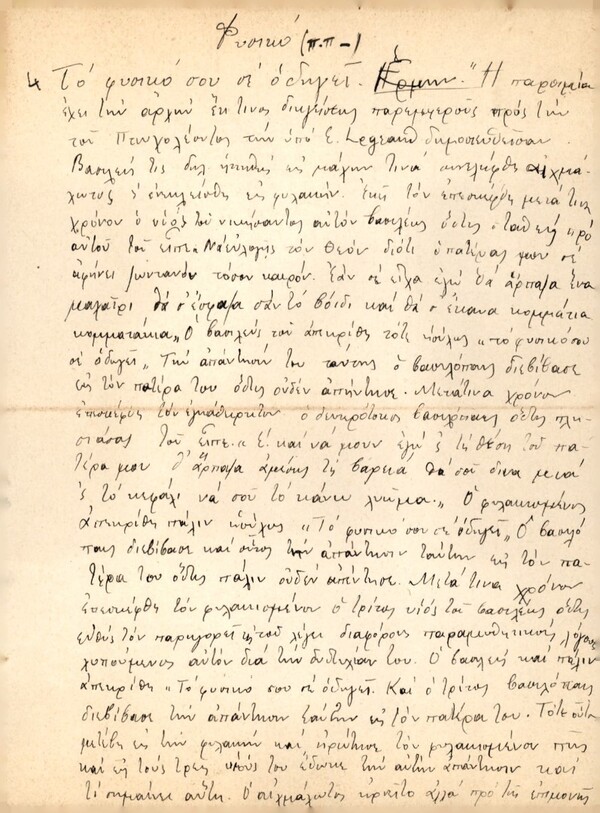 Φυσικό (π.π-)
4 Τό φυσικό σου σέ ὁδηγεῖ. Ἡ παροιμία
ἔχει τήν ἀρχήν ἔκ τινος διηγήσεως παρεμφεροῦς πρός τήν
τοῦ Πτωχολέοντος τήν ὑπό E. Legrand δημοσιευθεῖσαν.
Βασιλεύς τις δηλ. ἡττηθείς εἰς μάχην τινά συνελήφθη αἰχμά-
λωτος κ' ἐνεκλείσθη εἰς φυλακήν. Ἐκεῖ τόν ἐπεσκέφθη μετά τινα
χρόνον ὁ υἱός τοῦ νικήσαντος αὐτόν βασιλέως ὅστις σταθείς πρό
αὐτοῦ τοῦ εἶπε " Νά εὐλογῇς τόν Θεόν διότι ὁ πατέρας μου σέ
ἀφήνει ζωντανόν τόσον καιρόν. Ἐάν σέ εἶχα ἐγώ θά ἅρπαζα ἕνα
μαχαίρι θά σ' ἔσφαζα σάν τό βόιδι καί θά σ' ἔκανα κομμάτια
κομματάκια" Ὁ βασιλεύς τοῦ ἀπεκρίθη τότε ἡσύχως "τό φυσικό σου
σέ ὁδηγεῖ" Τήν ἀπάντησίν του ταύτην ὁ βασιλόπαις διεβίβασε
εἰς τόν πατέρα του ὅστις οὐδέν ἀπήντησε. Μετά τινα χρόνον
ἐπεσκέφθη τόν ἐγκάθειρκτον ὁ δευτερότοκος βασιλόπαις ὅστις πλη-
σιάσας τοῦ εἶπε " Ἔ! καί νά μουν ἐγώ 'ς τή θέση τοῦ πα-
τέρα μου θ' ἅρπαζα ἀμέσως τή βαρειά θά σοῦ δινα μενιά
'ς τό κεφάλι νά σοῦ τό κάνω λυῶμα." Ὁ φυλακισμένος
ἀπεκρίθη πάλιν ἡσύχως "Τό φυσικό σου σέ ὁδηγεῖ" Ὁ βασιλό
παις διεβίβασε καί οὗτος τήν ἀπάντησιν ταύτην εἰς τόν πα-
τέρα του ὅστις πάλιν οὐδέν ἀπήντησε. Μετά τινα χρόνον
ἐπεσκέφθη τόν φυλακισμένον ὁ τρίτος υἱός τοῦ βασιλέως ὅστις
εὐθύς τόν παρηγορεῖ τοῦ λέγει διαφόρους παραμυθητικούς λόγους
λυπούμενος αὐτόν διά τήν δυστυχίαν του. Ὁ βασιλεύς καί πάλιν
ἀπεκρίθη "Τό φυσικό σου σέ ὁδηγεῖ. Καί ὁ τρίτος βασιλόπαις
διεβίβασε τήν ἀπάντησιν ταύτην εἰς τόν πατέρα του. Τότε οὗτος
μετέβη εἰς τήν φυλακήν καί ἠρώτησε τόν φυλακισμένον πῶς
καί εἰς τούς τρεῖς υἱούς του ἔδωκε τήν αὐτήν ἀπάντησιν καί
τί σημαίνει αὕτη. Ὁ αἰχμάλωτος ἠρνεῖτο ἀλλά πρό τῆς ἐπιμονῆς